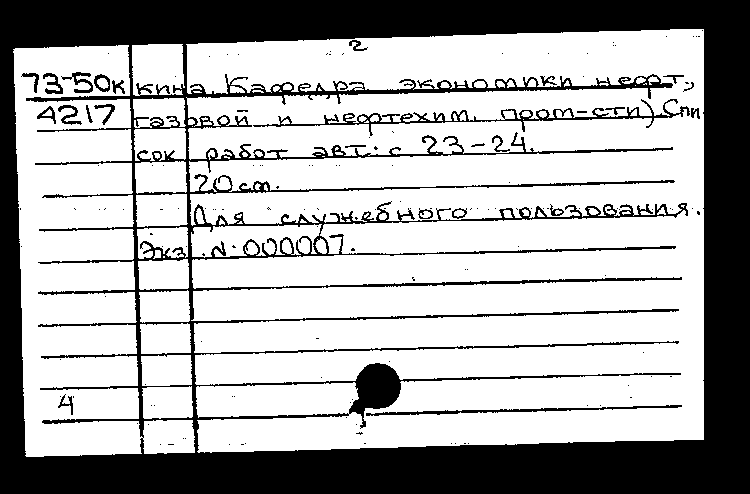 2
73-50к кина. Кафедра экономики нефт.,
4217 газовой и нефтехим. пром-сти) Спи
сок работ авт.: с 23-24.
20 ст.
Для служебного пользования.
Экз. N: 000007.
4